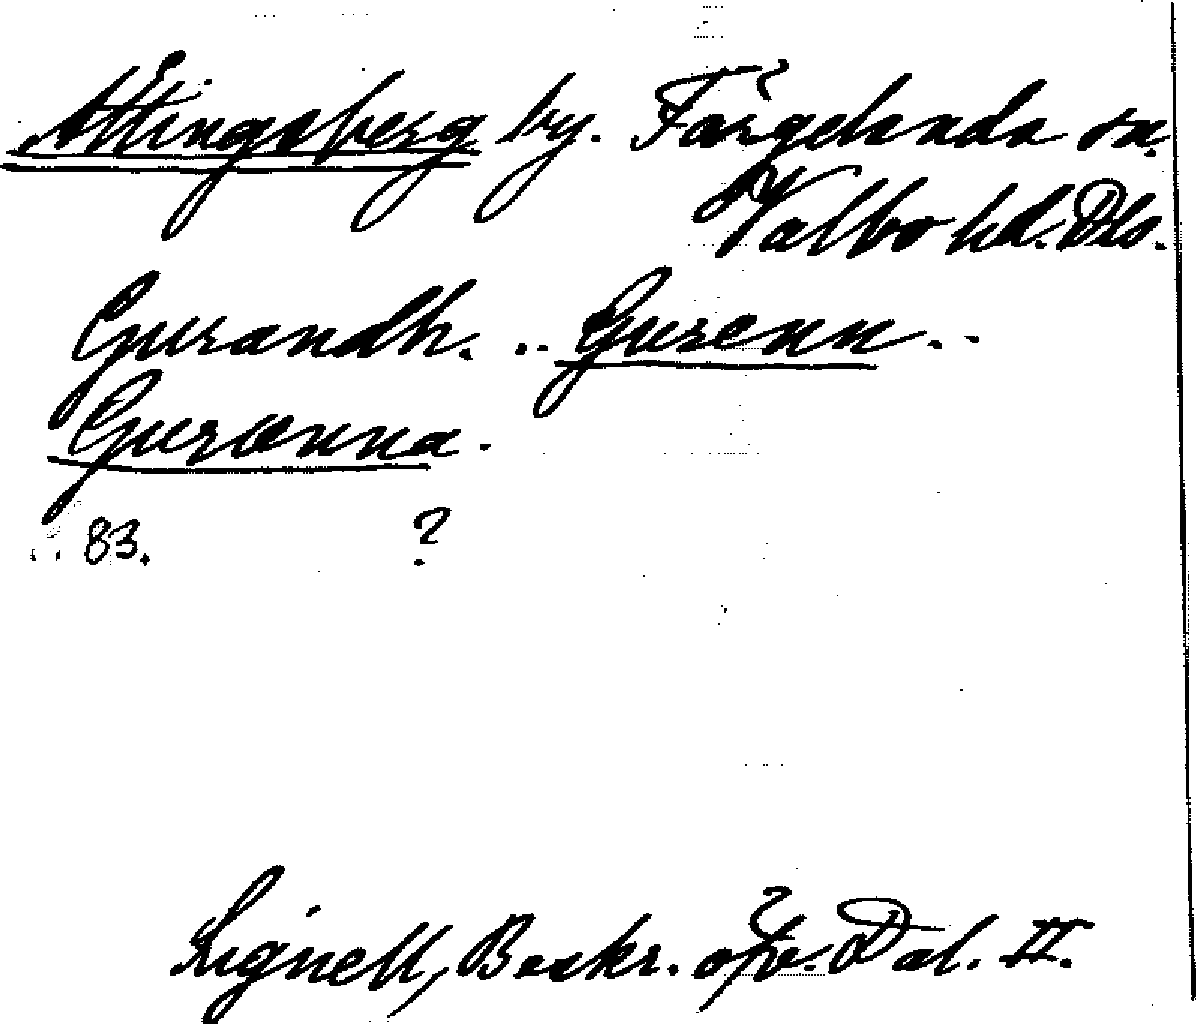 Ättingsberg by. Färgelanda sn.
Valbo hd. Dls.
Gurandh. .. Gurenn. --
Guranna.
.. 83. ?
Lignell, Beskr. öfv. Dal. II.